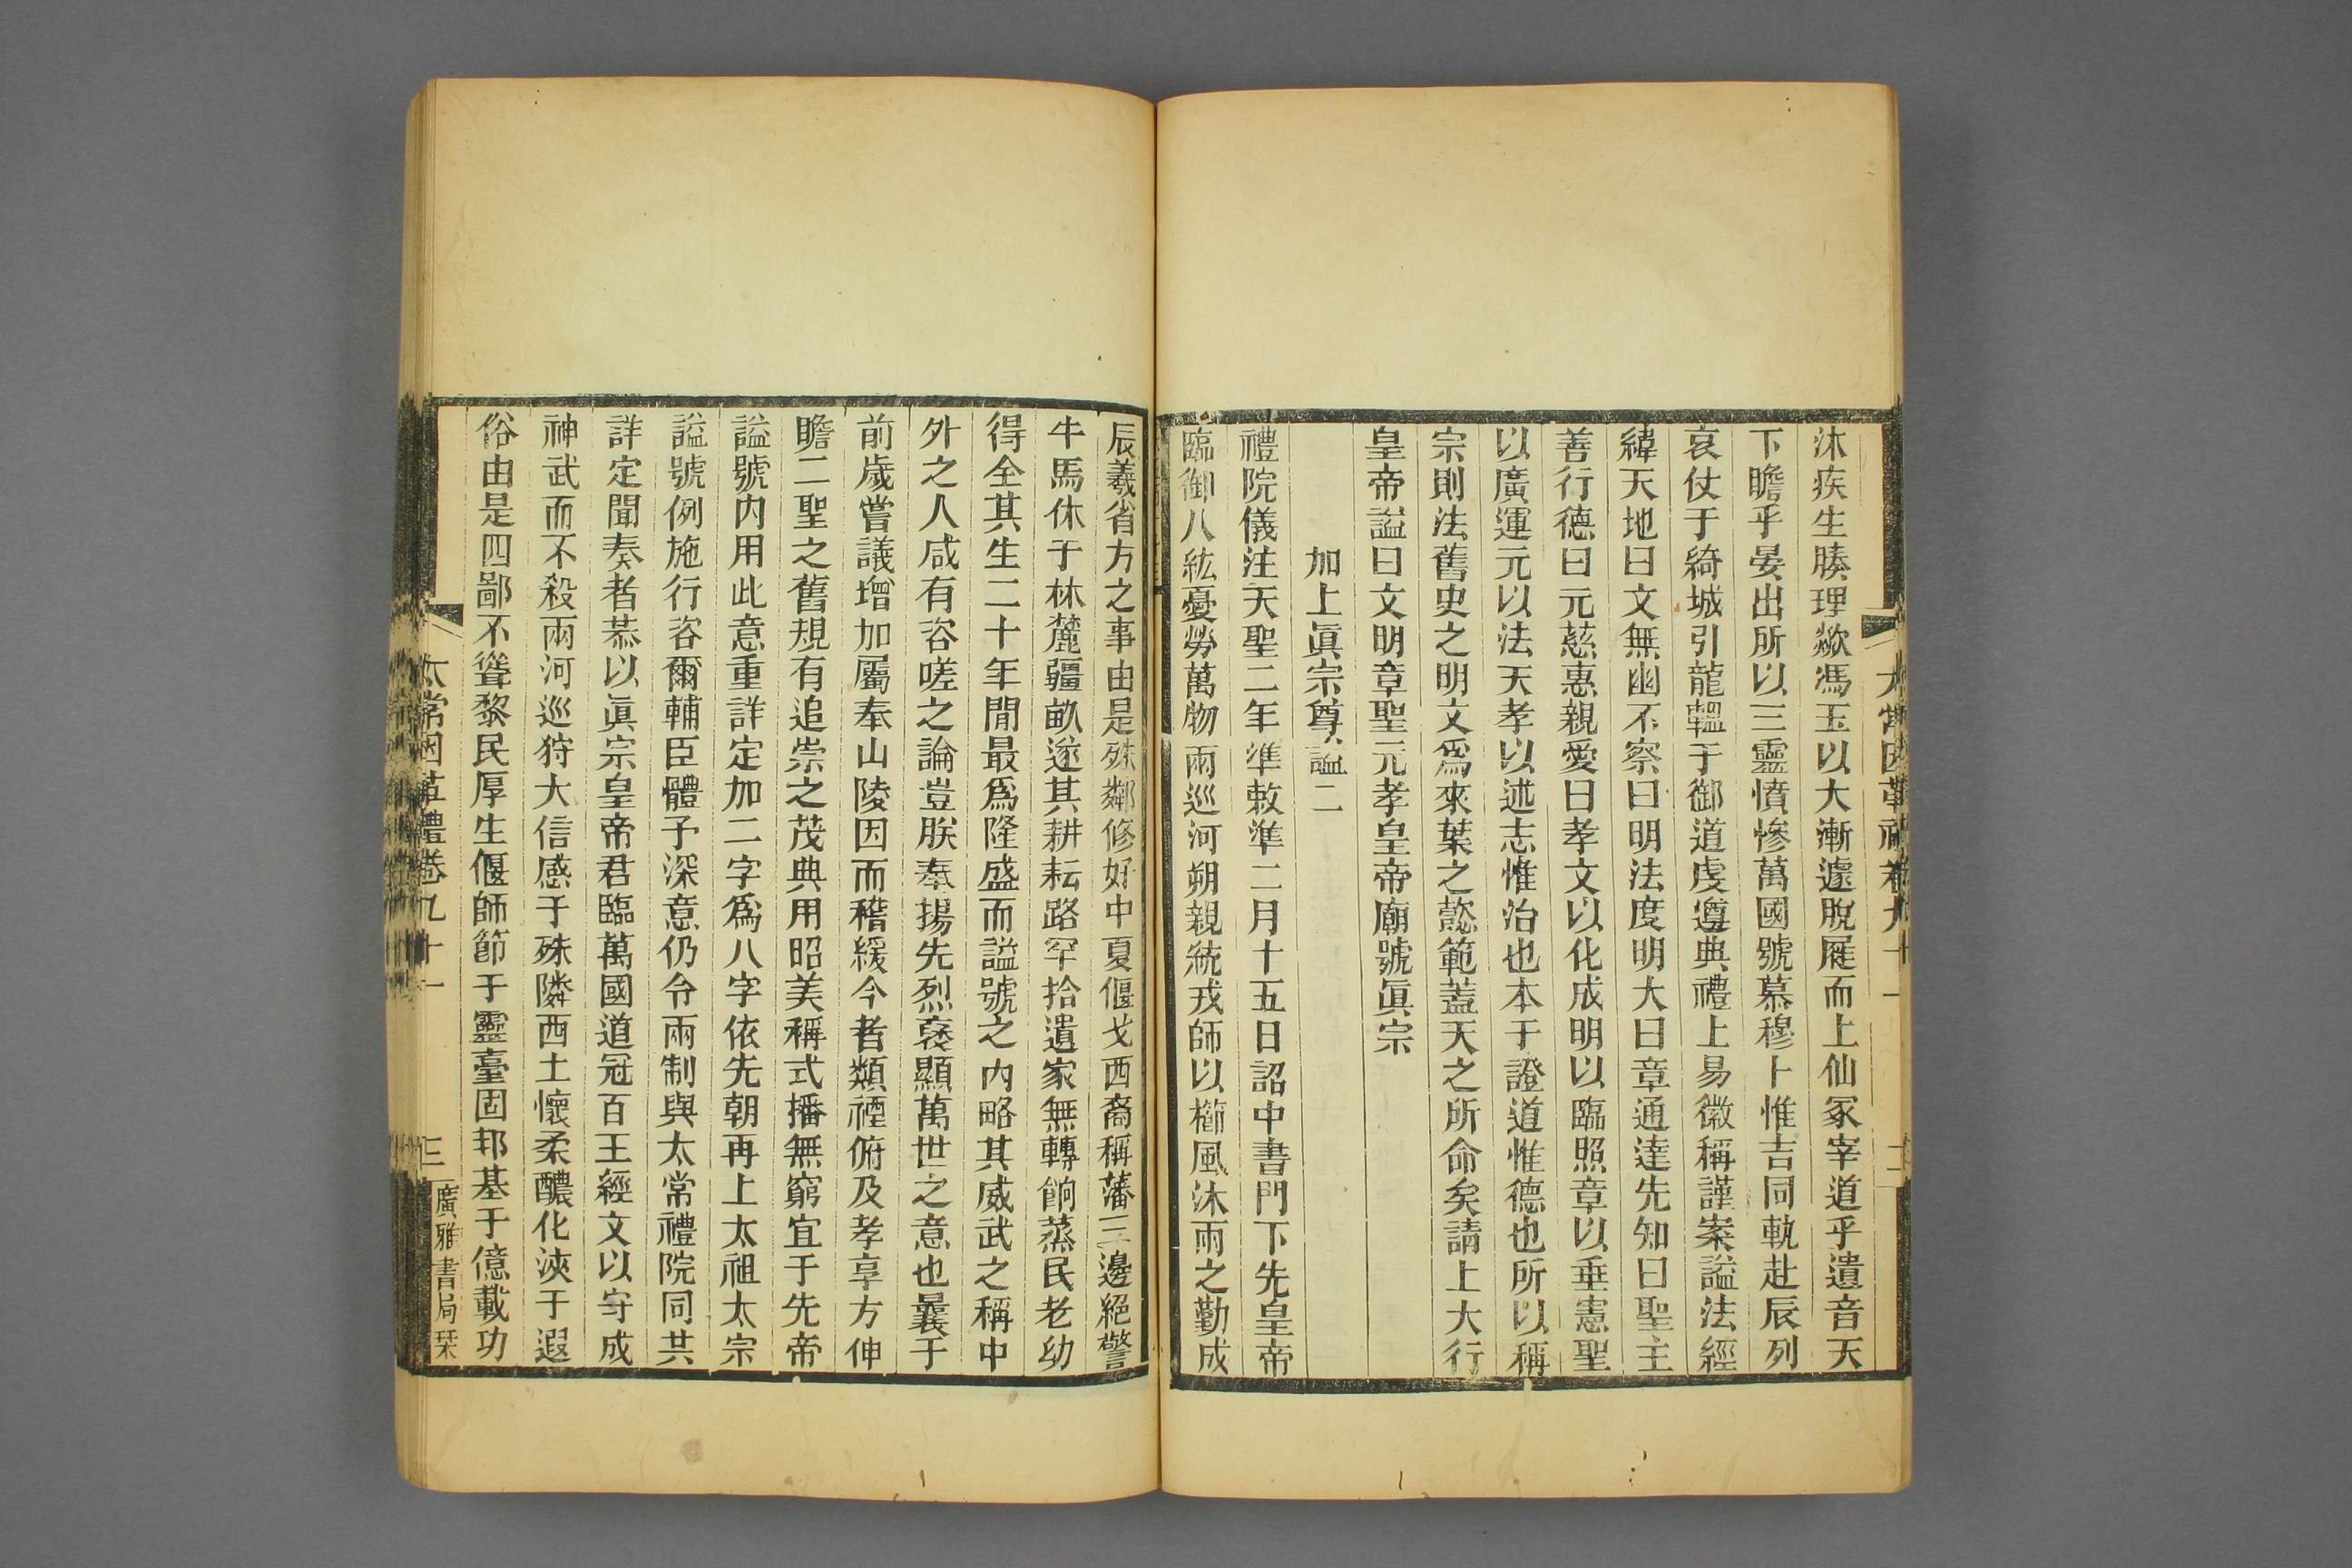 太常因革禮卷九十一 二
沐疾生腠理歘馮玉以大漸遽脫屣而上仙冢宰道乎遺音天
下瞻乎晏出所以三靈憤慘萬國號慕穆卜惟吉同軌赴辰列
哀仗于綺城引龍轀于御道虔遵典禮上易徽稱謹案謚法經
緯天地曰文無幽不察曰明法度明大曰章通達先知曰聖主
善行德曰元慈惠親愛曰孝文以化成明以臨照章以垂憲聖
以廣運元以法天孝以述志惟治也本于證道惟德也所以稱
宗則法舊史之明文爲來葉之懿範蓋天之所命矣請上大行
皇帝謚曰文明章聖元孝皇帝廟號眞宗
加上眞宗尊謚二
禮院儀注天聖二年準敕準二月十五日詔中書門下先皇帝
臨御八紘憂勞萬物兩巡河朔親統戎師以櫛風沐雨之勤成
辰羲省方之事由是殊鄰修好中夏偃戈西裔稱藩三邊絕警
牛馬休于林麓疆畝遂其耕耘路罕拾遺家無轉餉蒸民老幼
得全其生二十年閒最爲隆盛而謚號之內略其威武之稱中
外之人咸有咨嗟之論豈朕奉揚先烈褒顯萬世之意也曩于
前歲嘗議增加屬奉山陵因而稽緩今者類禋俯及孝享方伸
瞻二聖之舊規有追崇之茂典用昭美稱式播無窮宜于先帝
謚號內用此意重詳定加二字爲八字依先朝再上太祖太宗
謚號例施行咨爾輔臣體予深意仍令兩制與太常禮院同共
詳定聞奏者恭以眞宗皇帝君臨萬國道冠百王經文以守成
神武而不殺兩河巡狩大信感于殊隣西土懷柔醲化浹于遐
俗由是四鄙不聳黎民厚生偃師節于靈臺固邦基于億載功
太常因革禮卷九十一 三 廣雅書局栞